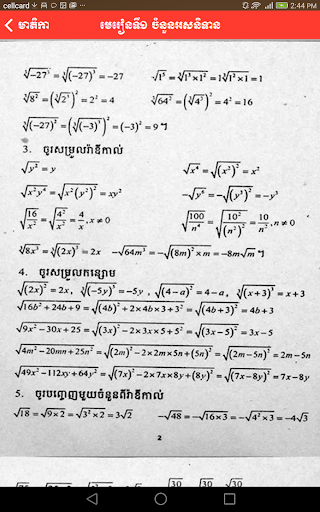 cellcard 2:44 PM
មាតិកា មេរៀនទី១ ចំនួនអសនិទាន
∛(-27³) = ∛((-27)³) = -27 ∛(1⁵) = ∛(1³×1²) = 1∛(1³×1) = 1
∛(8²) = (∛(2³))² = 2² = 4 ∛(64²) = (∛(4³))² = 4² = 16
∛((-27)²) = (∛((-3)³))² = (-3)² = 9 ។
3. ចូរសម្រួលរ៉ាឌីកាល់
√(y²) = y √(x⁴) = √((x²)²) = x²
√(x²y⁴) = √(x²(y²)²) = xy² -√(y⁶) = -√((y³)²) = -y³
√(16/x²) = √(4²/x²) = 4/x, x≠0 √(100/n⁴) = √(10²/(n²)²) = 10/n², n≠0
∛(8x³) = ∛((2x)³) = 2x -√(64m³) = -√((8m)²×m) = -8m√m ។
4. ចូរសម្រួលកន្សោម
√((2x)²) = 2x, ∛((-5y)³) = -5y, √((4-a)²) = 4-a, ∛((x+3)³) = x+3
√(16b²+24b+9) = √((4b)²+2×4b×3+3²) = √((4b+3)²) = 4b+3
√(9x²-30x+25) = √((3x)²-2×3x×5+5²) = √((3x-5)²) = 3x-5
√(4m²-20mn+25n²) = √((2m)²-2×2m×5n+(5n)²) = √((2m-5n)²) = 2m-5n
√(49x²-112xy+64y²) = √((7x)²-2×7x×8y+(8y)²) = √((7x-8y)²) = 7x-8y
5. ចូរបញ្ចេញមួយចំនួនពីរ៉ាឌីកាល់
√18 = √(9×2) = √(3²×2) = 3√2 -√48 = -√(16×3) = -√(4²×3) = -4√3
2